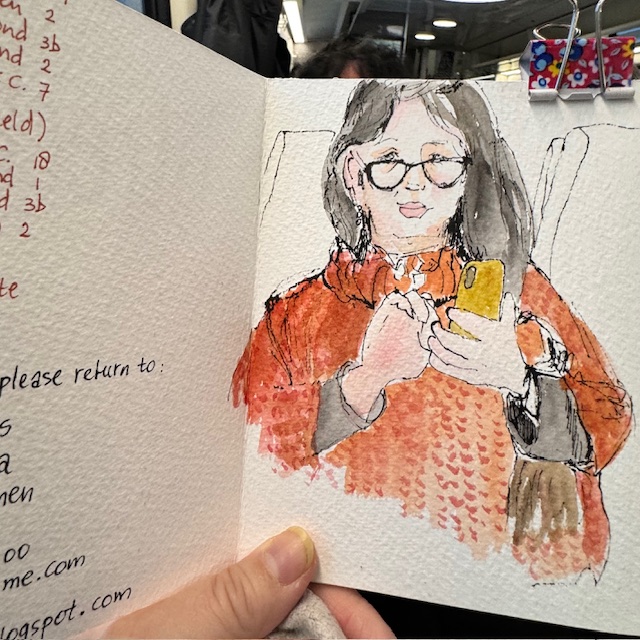 2
ond 3b
nd 2
c. 7
eld)
c. 18
nd 1
d 3b
2
te
please return to:
s
a
nen
00
me.com
logspot.com